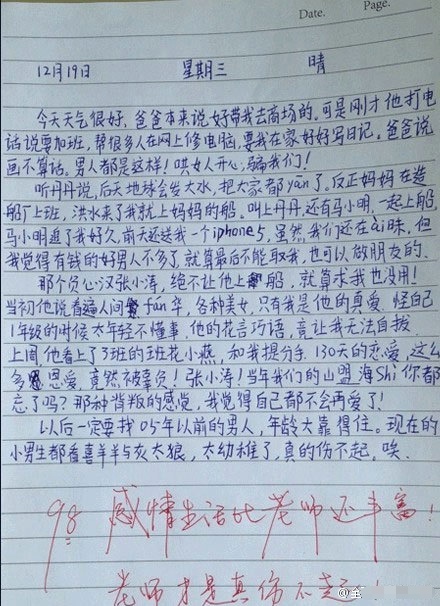 Date. Page.
12月19日 星期三 晴
今天天气很好，爸爸本来说好带我去商场的，可是刚才他打电
话说要加班，帮很多人在网上修电脑，要我在家好好写日记，爸爸说
画不算话，男人都是这样！哄女人开心，骗我们！
听丹丹说，后天地球会发大水，把大家都yān了，反正妈妈在造
船厂上班，洪水来了我就上妈妈的船。叫上丹丹，还有马小明，一起上船，
马小明追了我好久，前天还送我一个iphone5，虽然我们还在ai昧，但
我觉得有钱的好男人不多了，就算最后不能取我，也可以做朋友的。
那个负心汉张小涛，绝不让他上船，就算求我也没用！
当初他说看遍人间fán华，各种美女，只有我是他的真爱，怪自己
1年级的时候太年轻不懂事，他的花言巧语，竟让我无法自拔
上周他看上了3班的班花小燕，和我提分手，130天的恋爱，这么
多恩爱，竟然被辜负！张小涛！当年我们的山盟海Shi你都
忘了吗？那种背叛的感觉，我觉得自己都不会再爱了！
以后一定要找05年以前的男人，年龄大靠得住。现在的
小男生都看喜羊羊与灰太狼，太幼稚了，真的伤不起，唉。
98 感情生活比老师还丰富！
老师才是真伤不起